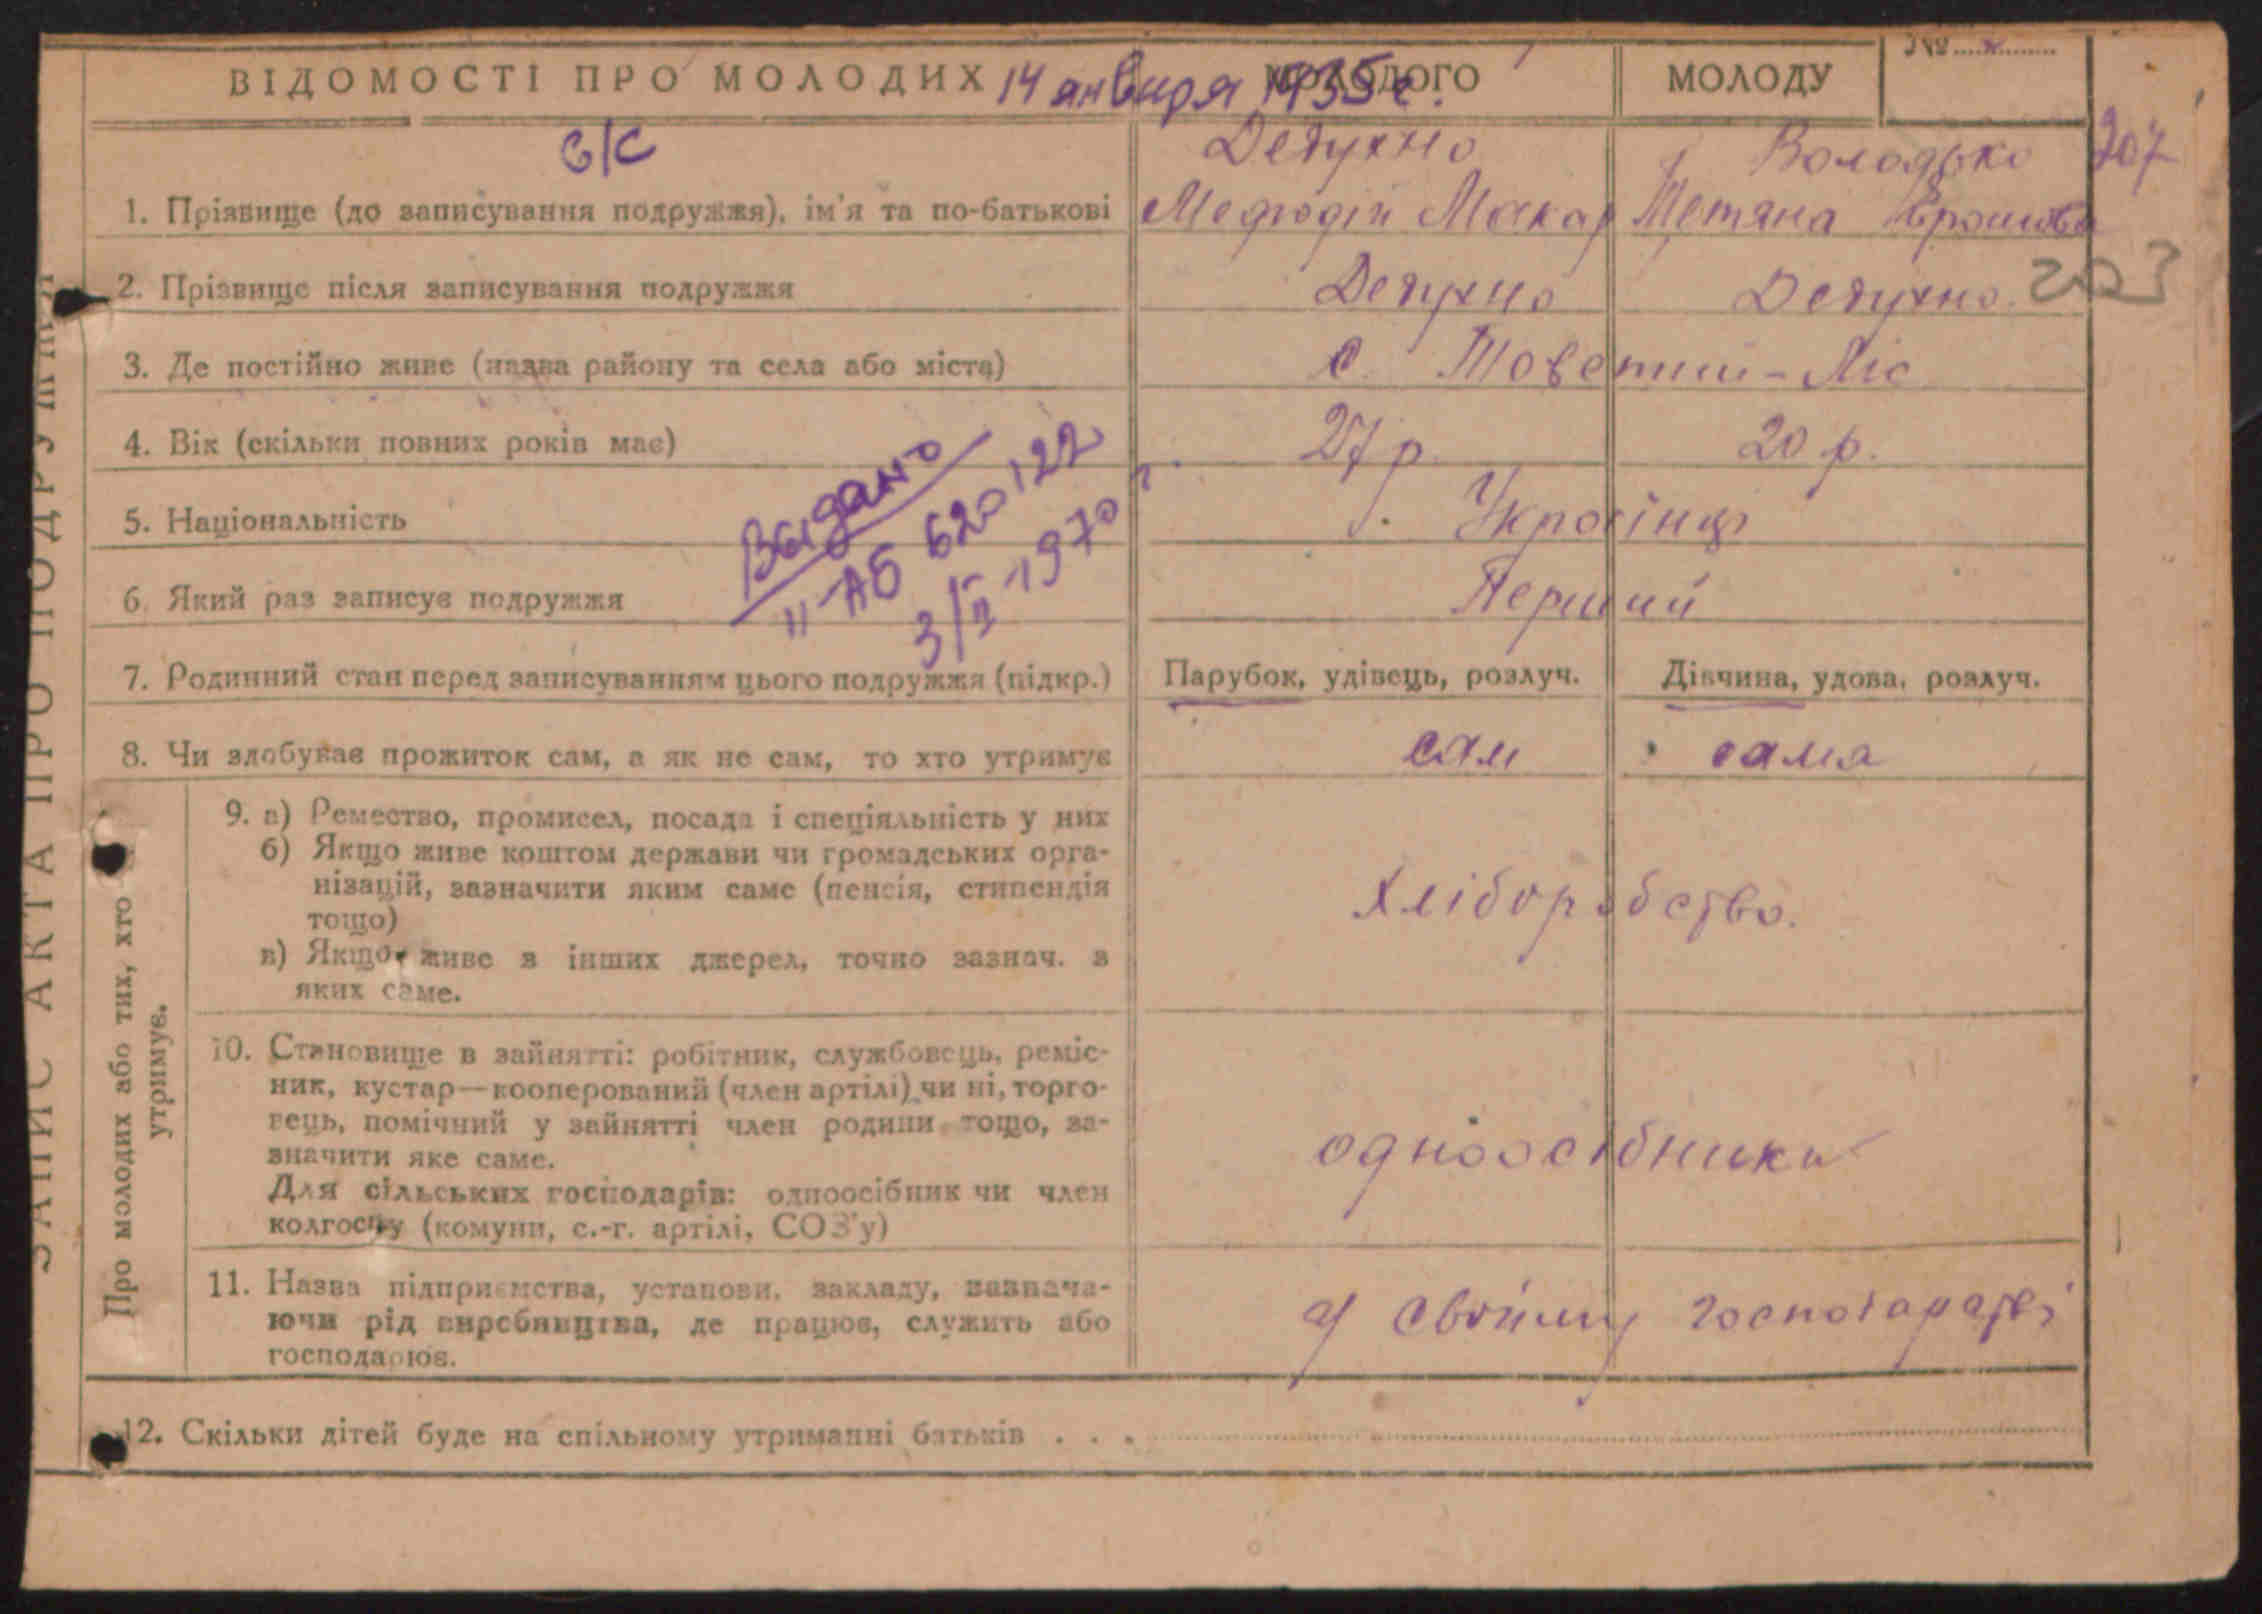 №
ВІДОМОСТІ ПРО МОЛОДИХ
14 января 1935 г.
МОЛОДОГО
МОЛОДУ
с/с
207
1. Прізвище (до записування подружжя), ім'я та по-батькові
Дедухно
Мефодій Макар
Володько
Тетяна
203
2. Прізвище після записування подружжя
Дедухно
Дедухно
3. Де постійно живе (назва району та села або міста)
с. Товстий-Ліс
4. Вік (скільки повних років має)
27 р.
20 р.
5. Національність
Українці
6. Який раз записує подружжя
Перший
Выдано
II-АБ 620122
3/II-1970 г.
7. Родинний стан перед записуванням цього подружжя (підкр.)
Парубок, удівець, розлуч.
Дівчина, удова, розлуч.
8. Чи здобуває прожиток сам, а як не сам, то хто утримує
сам
сама
Про молодих або тих, хто утримує.
9. а) Ремество, промисел, посада і спеціяльність у них
б) Якщо живе коштом держави чи громадських орга-
нізацій, зазначити яким саме (пенсія, стипендія
тощо)
в) Якщо живе з інших джерел, точно зазнач. з
яких саме.
Хліборобство.
10. Становище в зайнятті: робітник, службовець, реміс-
ник, кустар—кооперований (член артілі) чи ні, торго-
вець, помічний у зайнятті член родини тощо, за-
значити яке саме.
Для сільських господарів: одноосібник чи член
колгоспу (комуни, с.-г. артілі, СОЗ'у)
одноосібники
11. Назва підприємства, установи, закладу, визнача-
ючи рід виробництва, де працює, служить або
господарює.
у свойму господарстві
12. Скільки дітей буде на спільному утриманні батьків . . .
ЗАПИС АКТА ПРО ПОДРУЖЖЯ